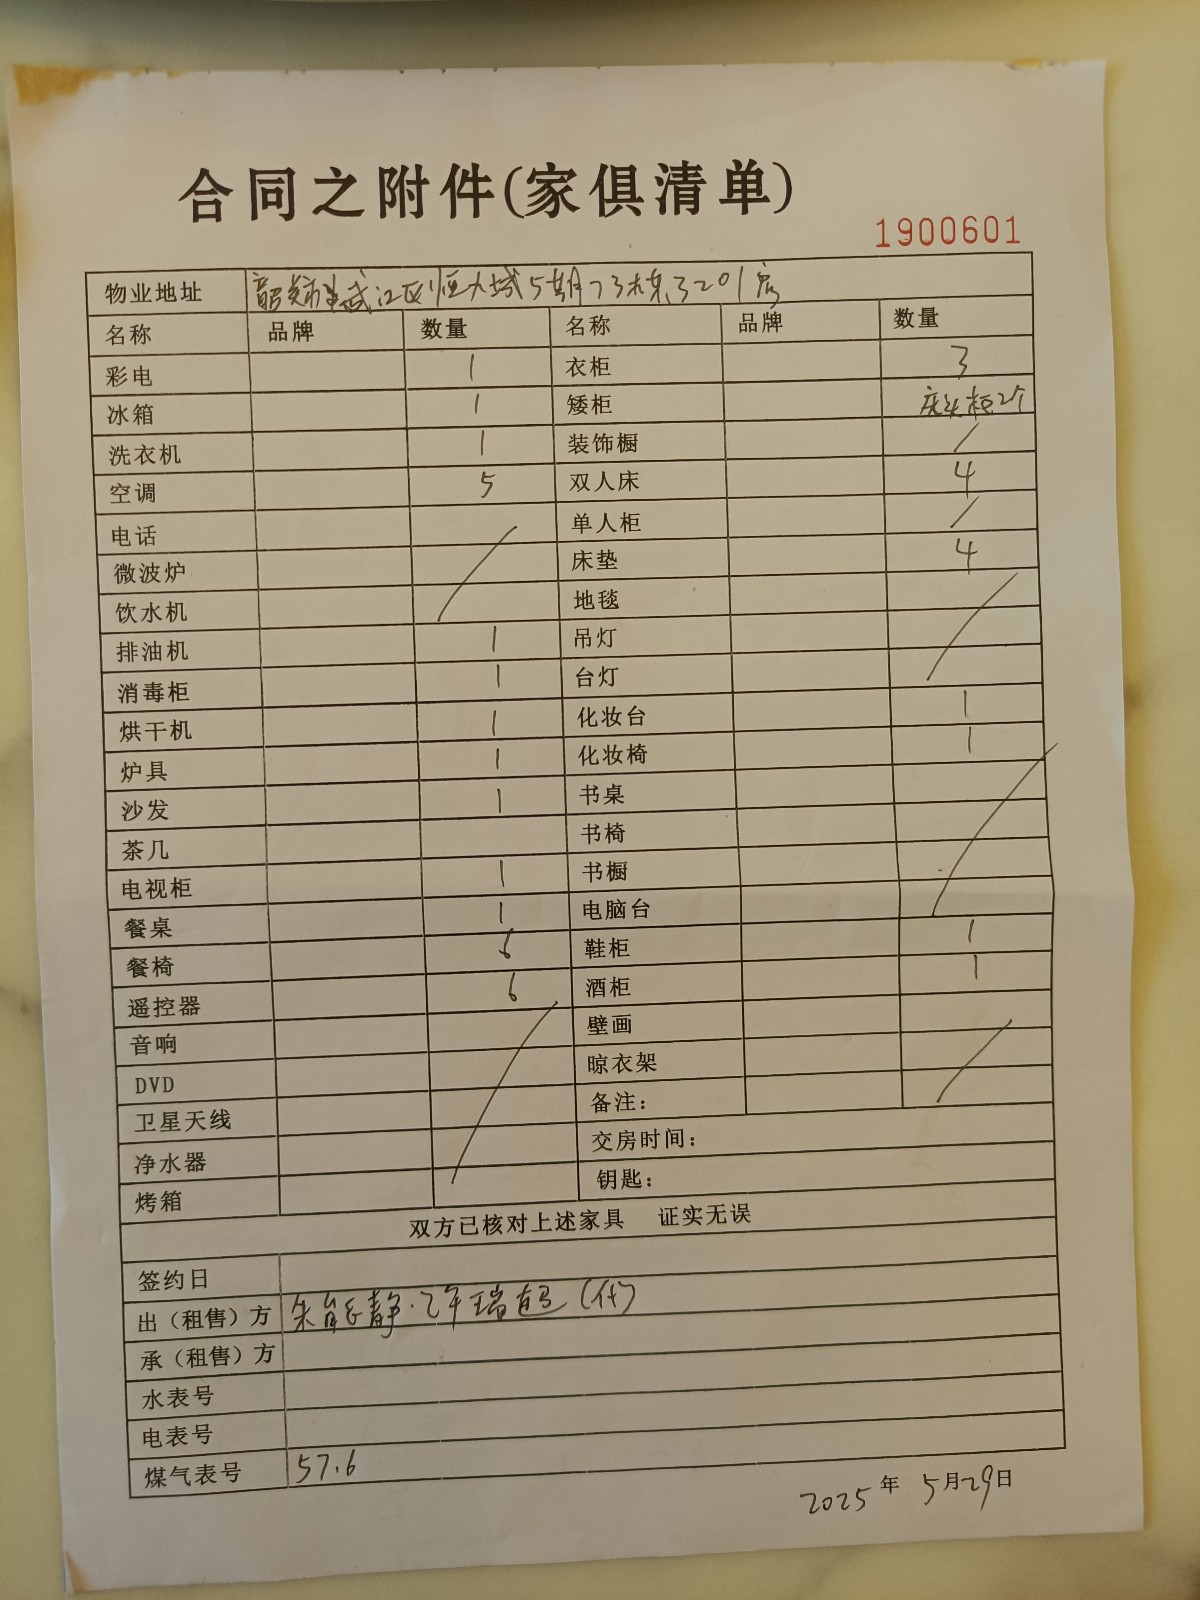 合同之附件(家俱清单)
1900601
物业地址 韶关市武江区恒大城5期73栋3201房
名称 品牌 数量 名称 品牌 数量
彩电 1 衣柜 3
冰箱 1 矮柜 床头柜2个
洗衣机 1 装饰橱 /
空调 5 双人床 4
电话 单人柜 /
微波炉 床垫 4
饮水机 地毯
排油机 1 吊灯
消毒柜 1 台灯
烘干机 1 化妆台 1
炉具 1 化妆椅 1
沙发 1 书桌
茶几 书椅
电视柜 1 书橱
餐桌 1 电脑台
餐椅 6 鞋柜 1
遥控器 6 酒柜 1
音响 壁画
DVD 晾衣架
卫星天线 备注：
净水器 交房时间：
烤箱 钥匙：
双方已核对上述家具 证实无误
签约日
出（租售）方 朱能静 瑞 (代)
承（租售）方
水表号
电表号
煤气表号 57.6
2025年5月29日